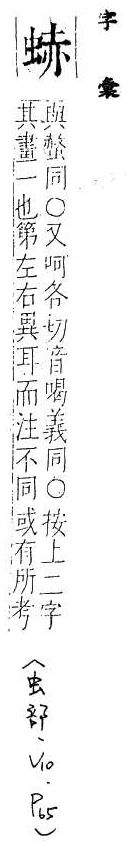 字彙
䖨
與螫同○又呵各切音喝義同○按上二字
其畫一也第左右異耳而注不同或有所考
(虫部、V10.P65)